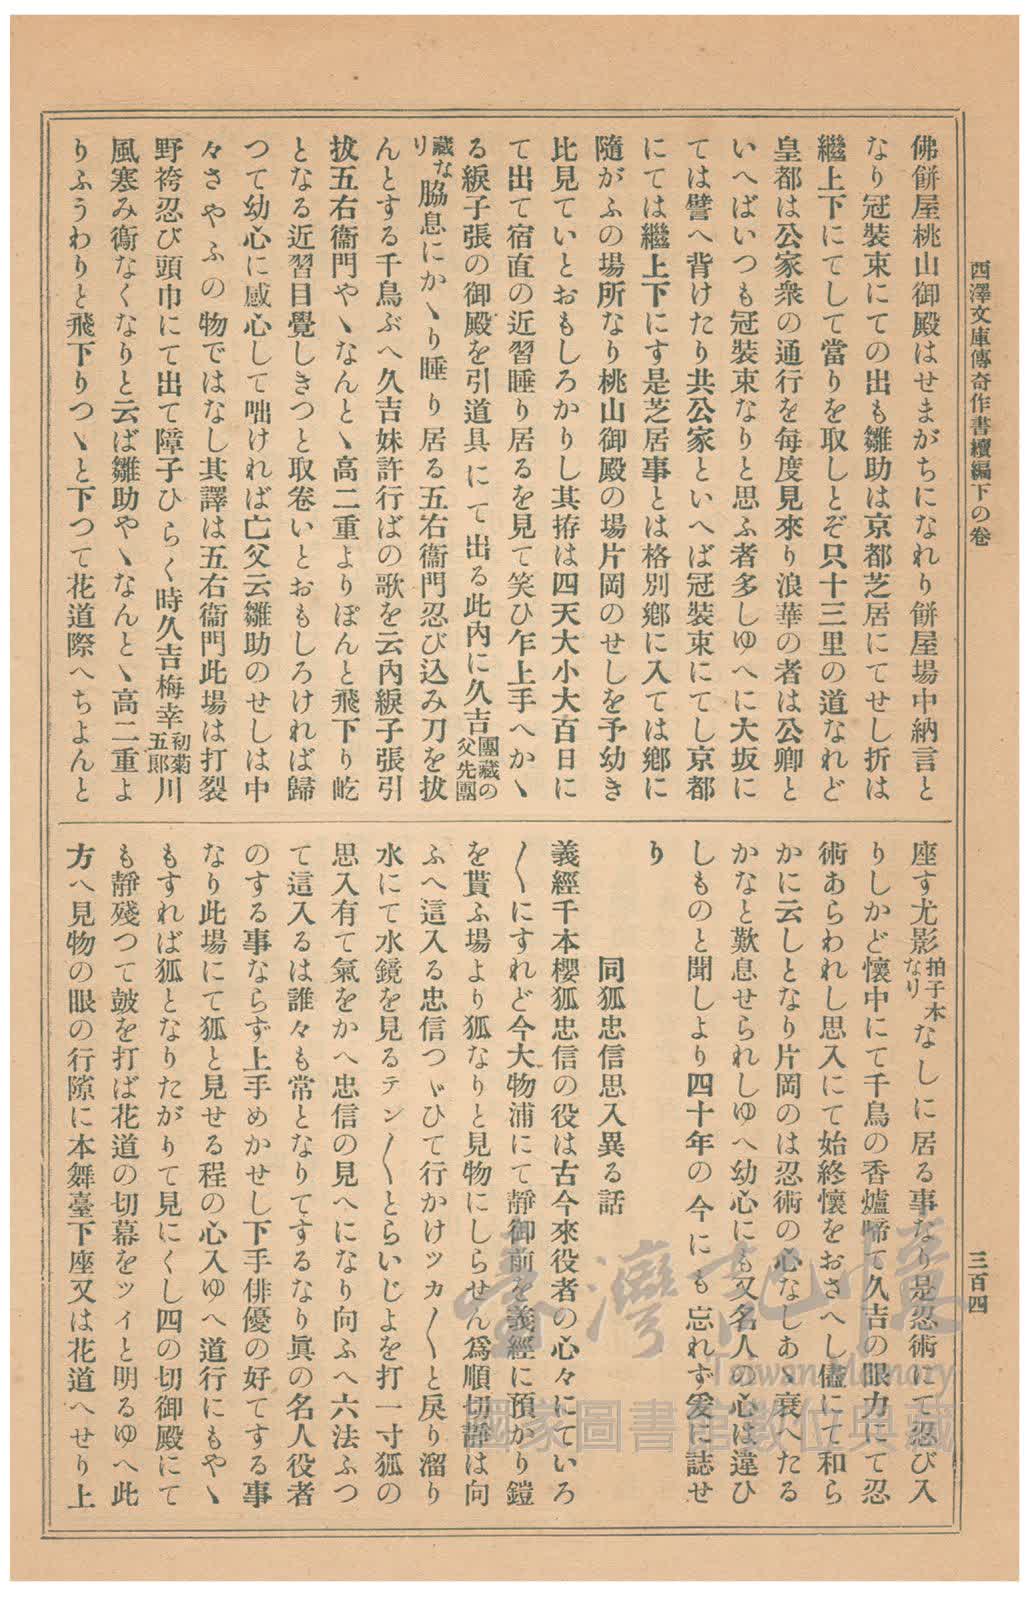 西澤文庫傳奇作書續編下の卷
三百四
佛餠屋桃山御殿はせまがちになれり餠屋場中納言と
なり冠裝束にての出も雛助は京都芝居にてせし折は
繼上下にてして當りを取しとぞ只十三里の道なれど
皇都は公家衆の通行を毎度見來り浪華の者は公卿と
いへばいつも冠裝束なりと思ふ者多しゆへに大坂に
ては譬へ背けたり共公家といへば冠裝束にてし京都
にては繼上下にす是芝居事とは格別鄕に入ては鄕に
隨がふの場所なり桃山御殿の場片岡のせしを予幼き
比見ていとおもしろかりし其拵は四天大小大百日に
て出て宿直の近習睡り居るを見て笑ひ乍上手へかゝ
る綟子張の御殿を引道具にて出る此内に久吉團藏の父先團
藏なり脇息にかゝり睡り居る五右衞門忍び込み刀を拔
んとする千鳥ぶへ久吉妹許行ばの歌を云內綟子張引
拔五右衞門やゝなんとゝ高二重よりぽんと飛下り屹
となる近習目覺しきつと取卷いとおもしろければ歸
つて幼心に感心して咄ければ亡父云雛助のせしは中
々さやふの物ではなし其譯は五右衞門此場は打裂
野袴忍び頭巾にて出て障子ひらく時久吉梅幸初菊五郞川
風寒み衞なくなりと云ば雛助やゝなんとゝ高二重よ
りふうわりと飛下りつゝと下つて花道際へちよんと
座す尤影拍子木なりなしに居る事なり是忍術にて忍び入
りしかど懷中にて千鳥の香爐啼て久吉の眼力にて忍
術あらわれし思入にて始終懷をおさへし儘にて和ら
かに云しとなり片岡のは忍術の心なしあゝ衰へたる
かなと歎息せられしゆへ幼心にも又名人の心は違ひ
しものと聞しより四十年の今にも忘れず爰に誌せ
り
同狐忠信思入異る話
義經千本櫻狐忠信の役は古今來役者の心々にていろ
〱にすれど今大物浦にて靜御前を義經に預かり鎧
を貰ふ場より狐なりと見物にしらせん爲順切靜は向
ふへ這入る忠信つゞひて行かけッカ〱と戾り溜り
水にて水鏡を見るテン〱とらいじよを打一寸狐の
思入有て氣をかへ忠信の見へになり向ふへ六法ふつ
て這入るは誰々も常となりてするなり眞の名人役者
のする事ならず上手めかせし下手俳優の好てする事
なり此場にて狐と見せる程の心入ゆへ道行にもやゝ
もすれば狐となりたがりて見にくし四の切御殿にて
も靜殘つて皷を打ば花道の切幕をッイと明るゆへ此
方へ見物の眼の行隙に本舞臺下座又は花道へせり上
臺灣記憶
Taiwan Memory
國家圖書館數位典藏